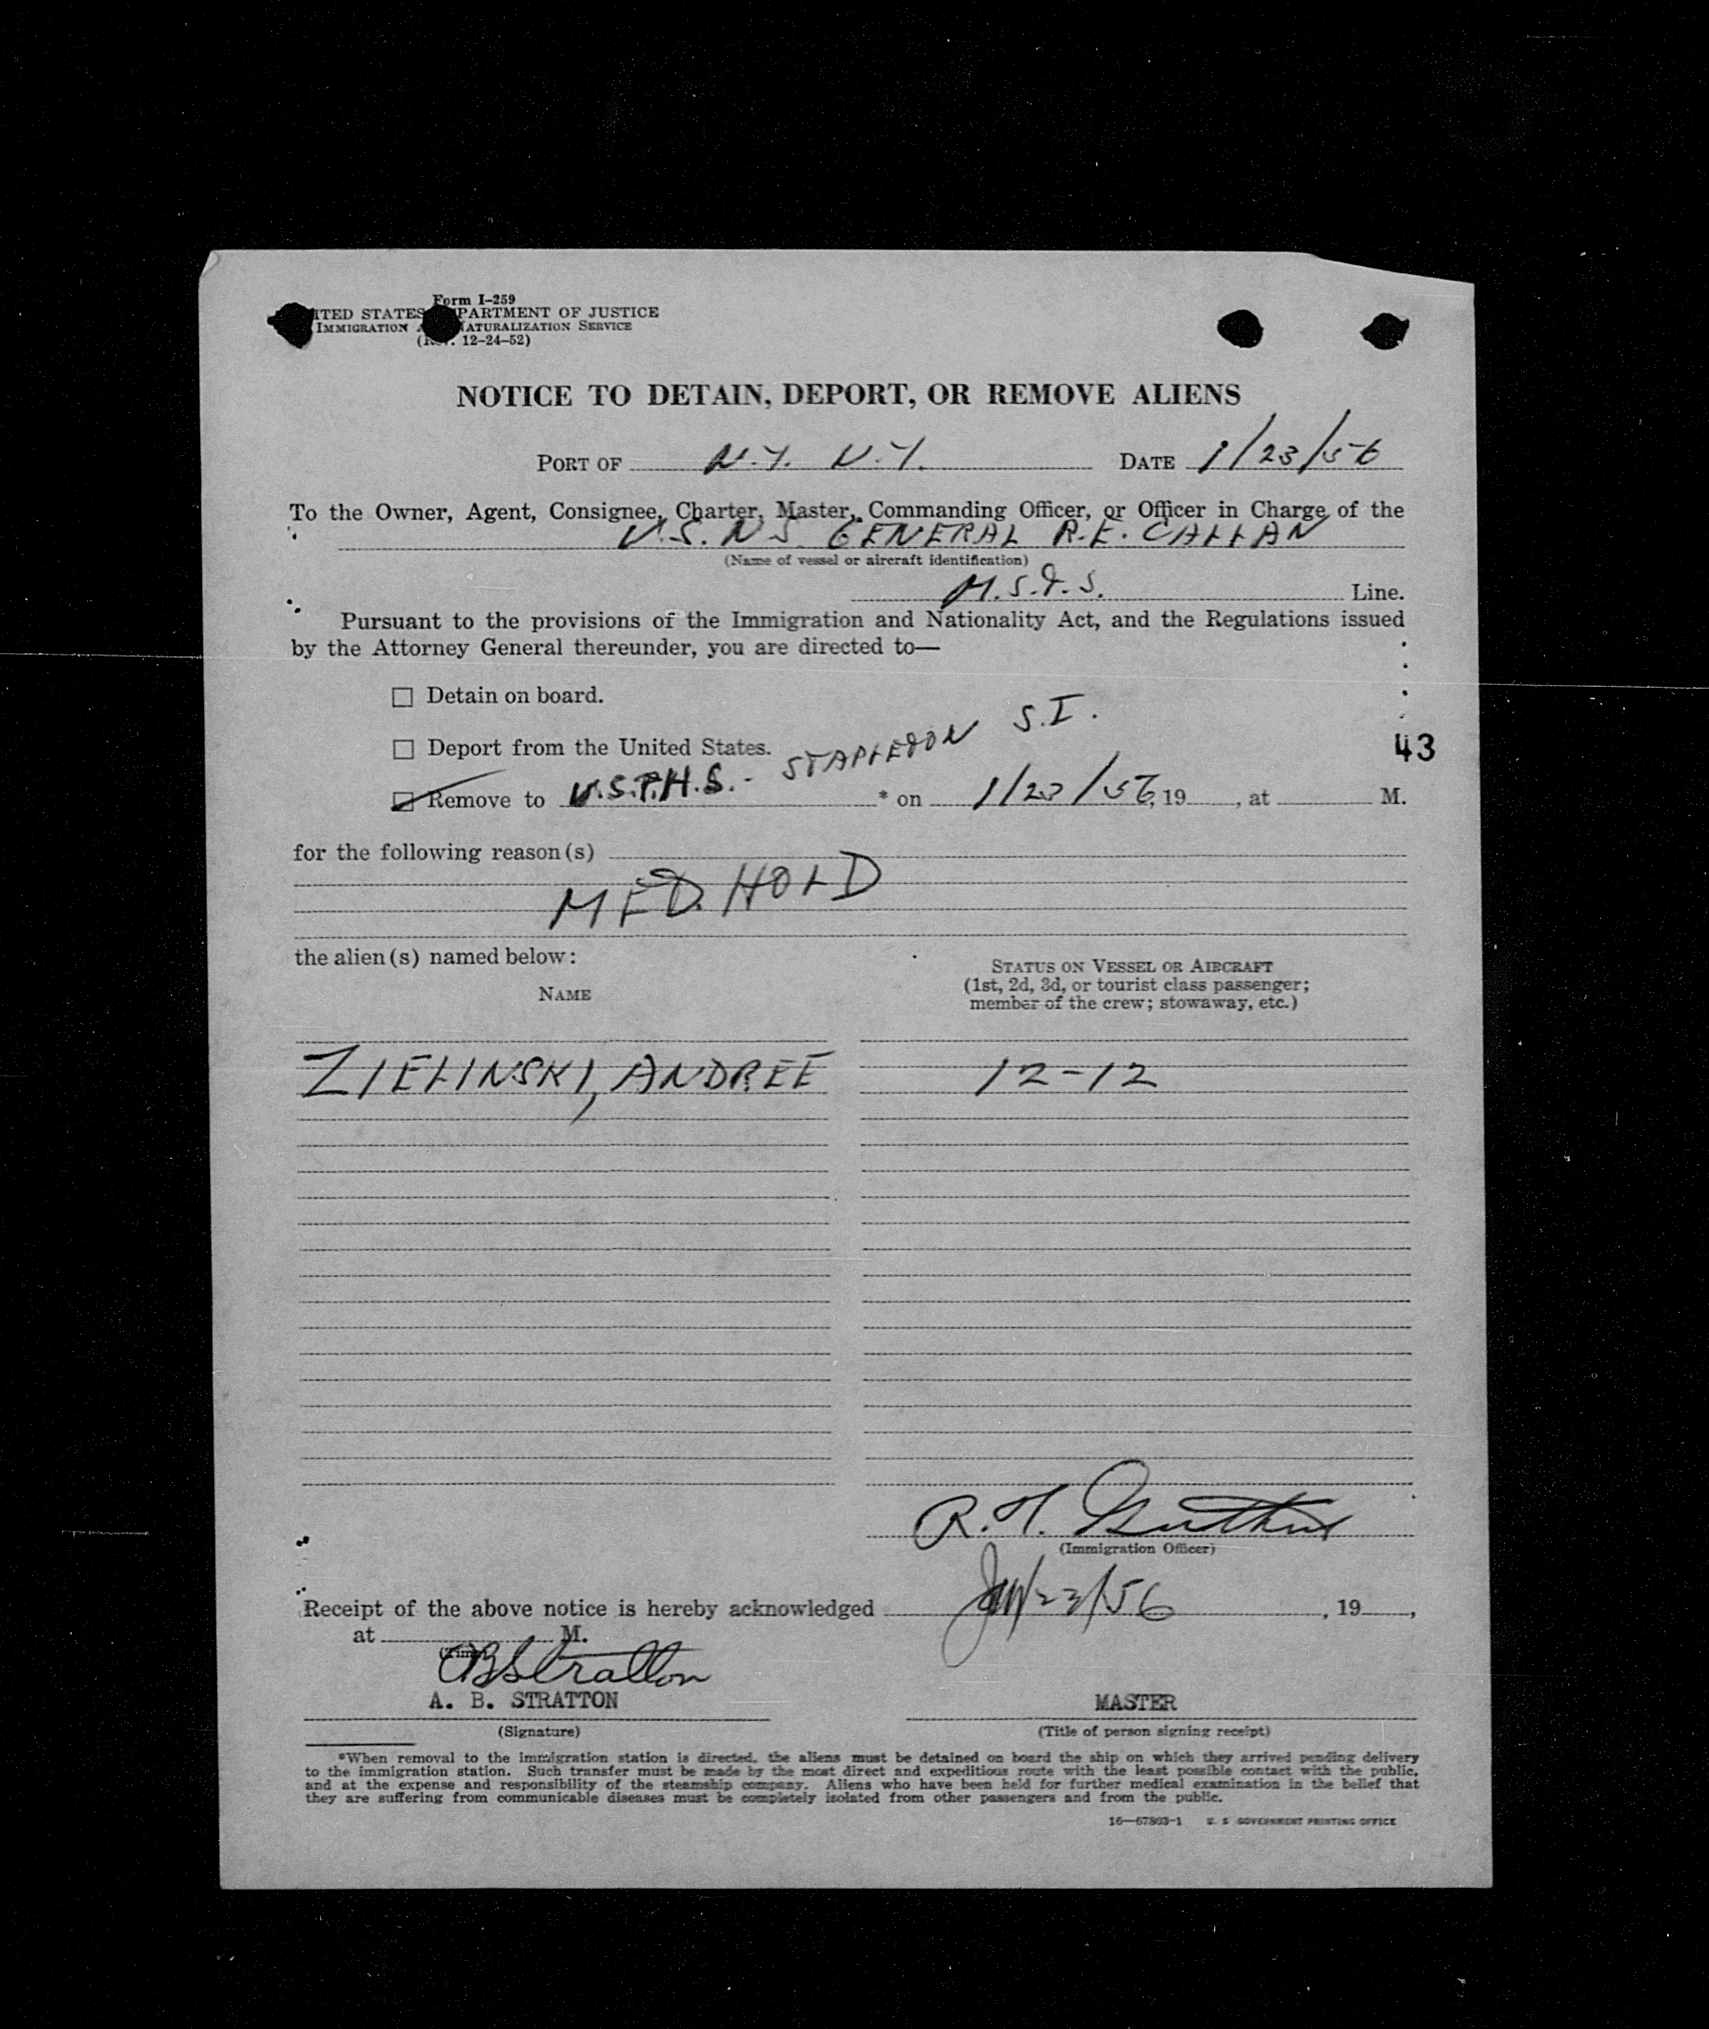 Form I-259
ITED STATES PARTMENT OF JUSTICE
IMMIGRATION A NATURALIZATION SERVICE
(R . 12-24-52)
NOTICE TO DETAIN, DEPORT, OR REMOVE ALIENS
PORT OF N.Y. N.Y. DATE 1/23/56
To the Owner, Agent, Consignee, Charter, Master, Commanding Officer, or Officer in Charge of the
U.S.N.S. GENERAL R.E. CALLAN
(Name of vessel or aircraft identification)
M.S.T.S. Line.
Pursuant to the provisions of the Immigration and Nationality Act, and the Regulations issued
by the Attorney General thereunder, you are directed to—
☐ Detain on board.
☐ Deport from the United States.
43
☐ Remove to U.S.P.H.S. - STAPLETON S.I. * on 1/23/56, 19 , at M.
for the following reason(s)
MED. HOLD
the alien(s) named below:
NAME
STATUS ON VESSEL OR AIRCRAFT
(1st, 2d, 3d, or tourist class passenger;
member of the crew; stowaway, etc.)
ZIELINSKI, ANDREE 12-12
R.
(Immigration Officer)
Receipt of the above notice is hereby acknowledged Jan/23/56 , 19 ,
at M.
ABStratton
A. B. STRATTON MASTER
(Signature) (Title of person signing receipt)
*When removal to the immigration station is directed, the aliens must be detained on board the ship on which they arrived pending delivery
to the immigration station. Such transfer must be made by the most direct and expeditious route with the least possible contact with the public,
and at the expense and responsibility of the steamship company. Aliens who have been held for further medical examination in the belief that
they are suffering from communicable diseases must be completely isolated from other passengers and from the public.
16—67803-1 U. S. GOVERNMENT PRINTING OFFICE